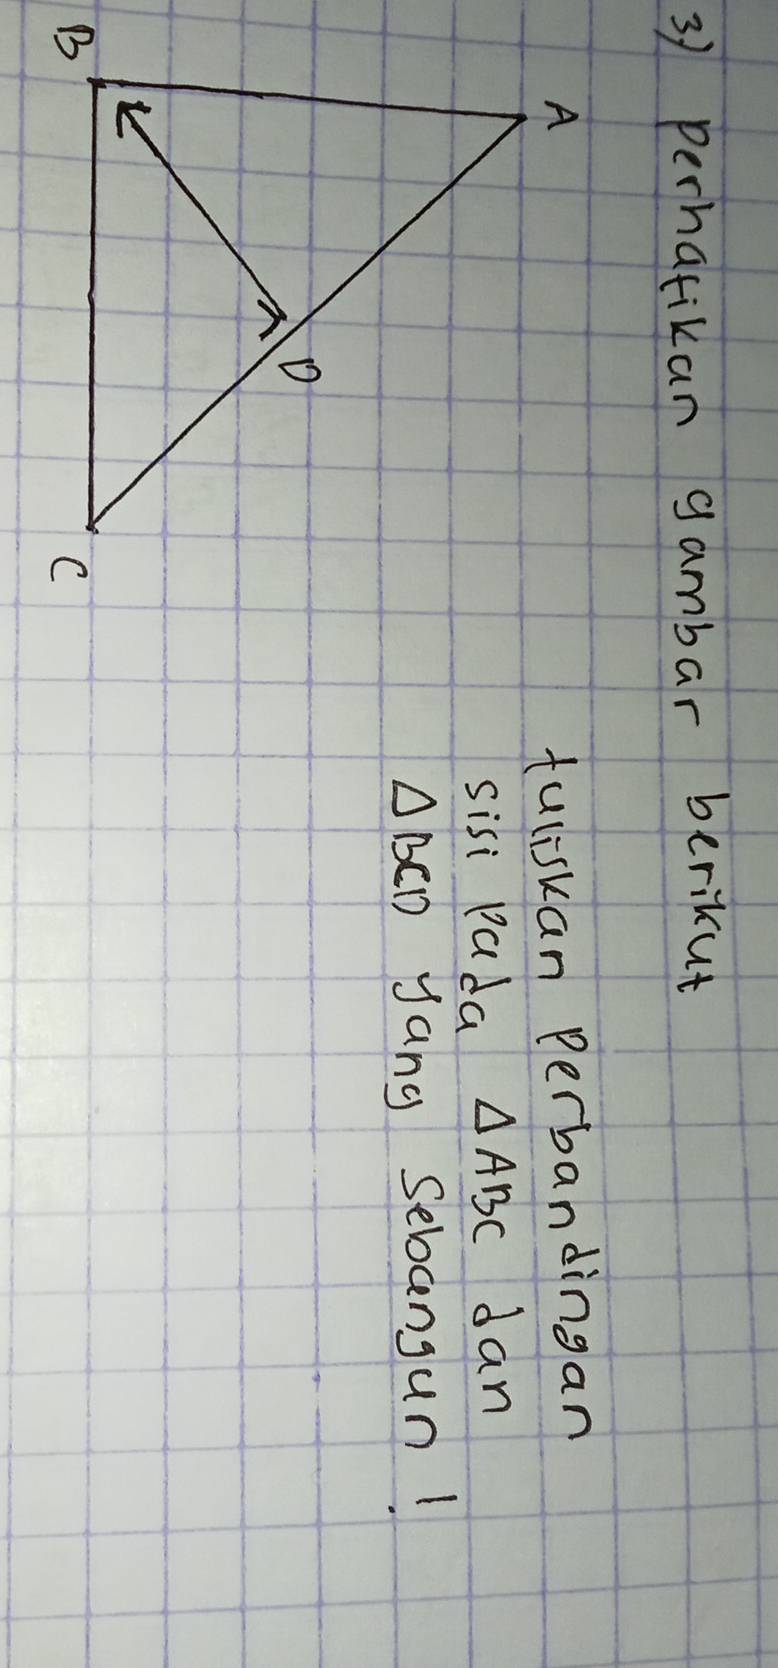 3) perhatikan gambar berikut
A
B
C
D
tuliskan perbandingan
sisi pada △ABC dan
△BCD yang sebangun !